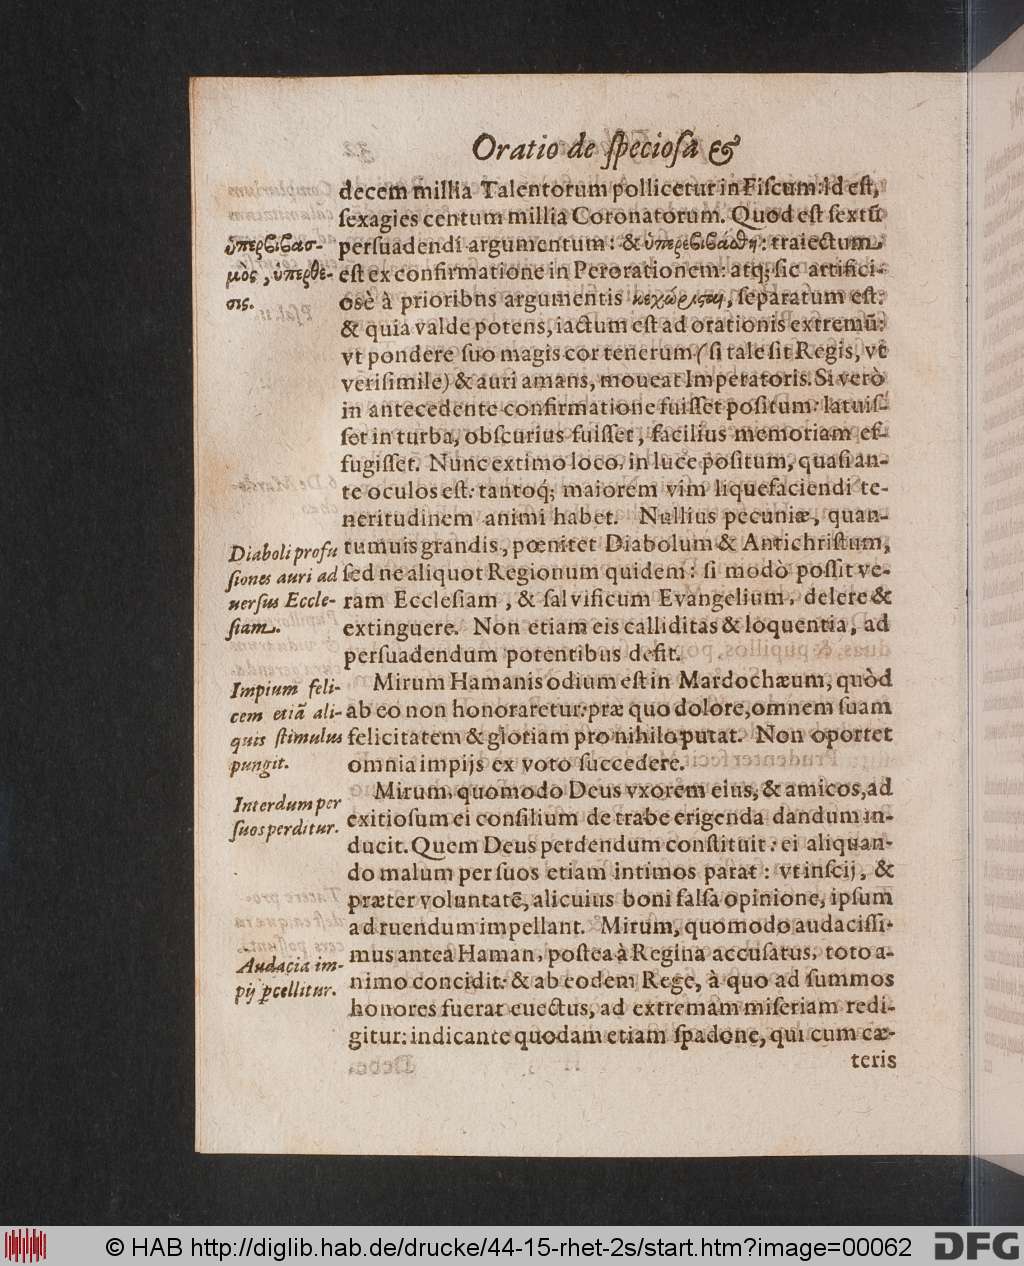 Oratio de ſpecioſa &
decem millia Talentorum pollicetur in Fiſcum: Id eſt,
ſexagies centum millia Coronatorum. Quod eſt ſextũ
perſuadendi argumentum: & ὑπερεβιβάσθη: traiectum
eſt ex confirmatione in Perorationem: atq; ſic artifici-
oſè à prioribus argumentis κεχώρισται, ſeparatum eſt:
& quia valde potens, iactum eſt ad orationis extremũ:
vt pondere ſuo magis cor tenerum (ſi tale ſit Regis, vt
veriſimile) & auri amans, moueat Imperatoris. Si verò
in antecedente confirmatione fuiſſet poſitum: latuiſ-
ſet in turba, obſcurius fuiſſet, facilius memoriam ef-
fugiſſet. Nunc extimo loco, in luce poſitum, quaſi an-
te oculos eſt: tantoq́; maiorem vim liquefaciendi te-
neritudinem animi habet. Nullius pecuniæ, quan-
tumuis grandis, pœnitet Diabolum & Antichriſtum,
ſed ne aliquot Regionum quidem: ſi modò poſſit ve-
ram Eccleſiam, & ſalvificum Evangelium, delere &
extinguere. Non etiam eis calliditas & loquentia, ad
perſuadendum potentibus deſit.
Mirum Hamanis odium eſt in Mardochæum, quòd
ab eo non honoraretur: præ quo dolore, omnem ſuam
felicitatem & gloriam pro nihilo putat. Non oportet
omnia impijs ex voto ſuccedere.
Mirum, quomodo Deus vxorem eius, & amicos, ad
exitioſum ei conſilium de trabe erigenda dandum in-
ducit. Quem Deus perdendum conſtituit: ei aliquan-
do malum per ſuos etiam intimos parat: vt inſcij, &
præter voluntatē, alicuius boni falſa opinione, ipſum
ad ruendum impellant. Mirum, quomodo audaciſſi-
mus antea Haman, poſtea à Regina accuſatus, toto a-
nimo concidit: & ab eodem Rege, à quo ad ſummos
honores fuerat euectus, ad extremam miſeriam redi-
gitur: indicante quodam etiam ſpadone, qui cum cæ-
teris
ὑπερβιβασ-
μὸς, ὑπερθε-
σις.
Diaboli profu
ſiones auri ad
uerſus Eccle-
ſiam.
Impium feli-
cem etiã ali-
quis ſtimulus
pungit.
Interdum per
ſuos perditur.
Audacia im-
pij ꝑcellitur.
© HAB http://diglib.hab.de/drucke/44-15-rhet-2s/start.htm?image=00062
DFG